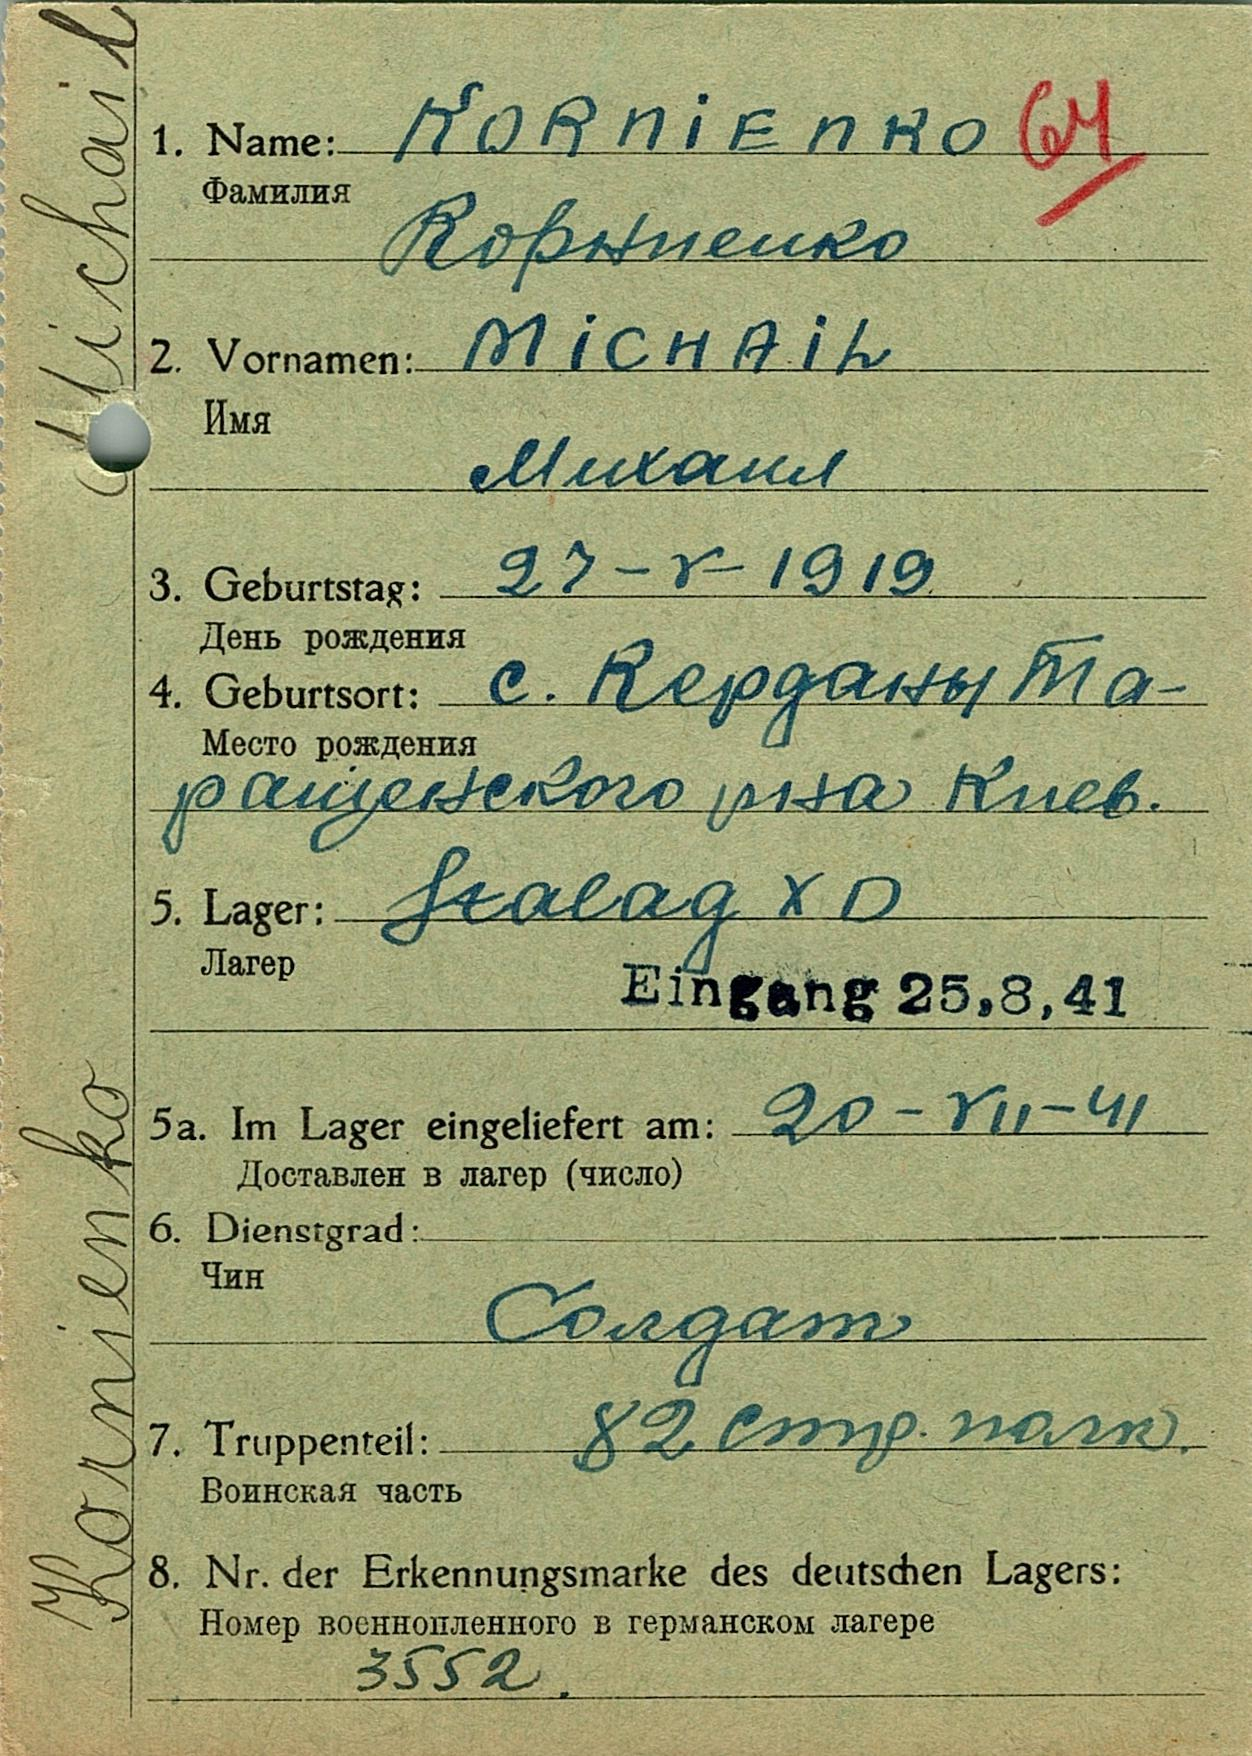 Kornienko Michail
1. Name: KORNIENKO 64
Фамилия
Корниенко
2. Vornamen: MICHAIL
Имя
Михаил
3. Geburtstag: 27-V-1919
День рождения
4. Geburtsort: с. Керданы Та-
Место рождения
ращенского р-на Киев.
5. Lager: Stalag X D
Лагер
Eingang 25,8,41
5a. Im Lager eingeliefert am: 20-VII-41
Доставлен в лагер (число)
6. Dienstgrad:
Чин
Солдат
7. Truppenteil: 82 стр. полк.
Воинская часть
8. Nr. der Erkennungsmarke des deutschen Lagers:
Номер военнопленного в германском лагере
3552.